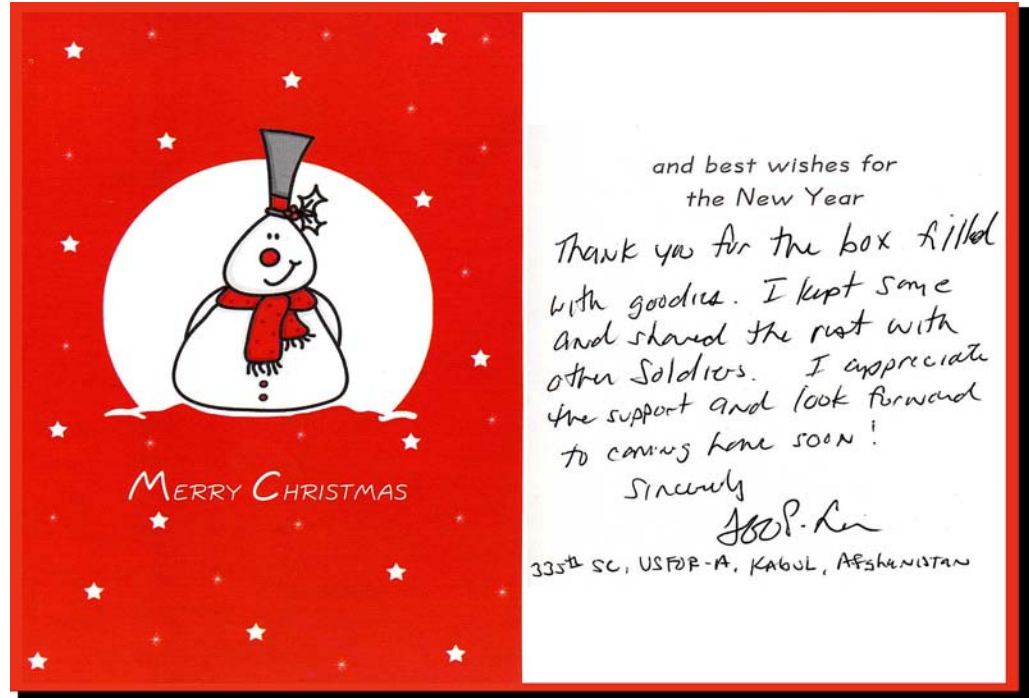 MERRY CHRISTMAS
and best wishes for
the New Year
Thank you for the box filled
with goodies. I kept some
and shared the rest with
other Soldiers. I appreciate
the support and look forward
to coming home soon!
Sincerely
335th SC, USFOR-A, KABUL, AFghaNISTAN